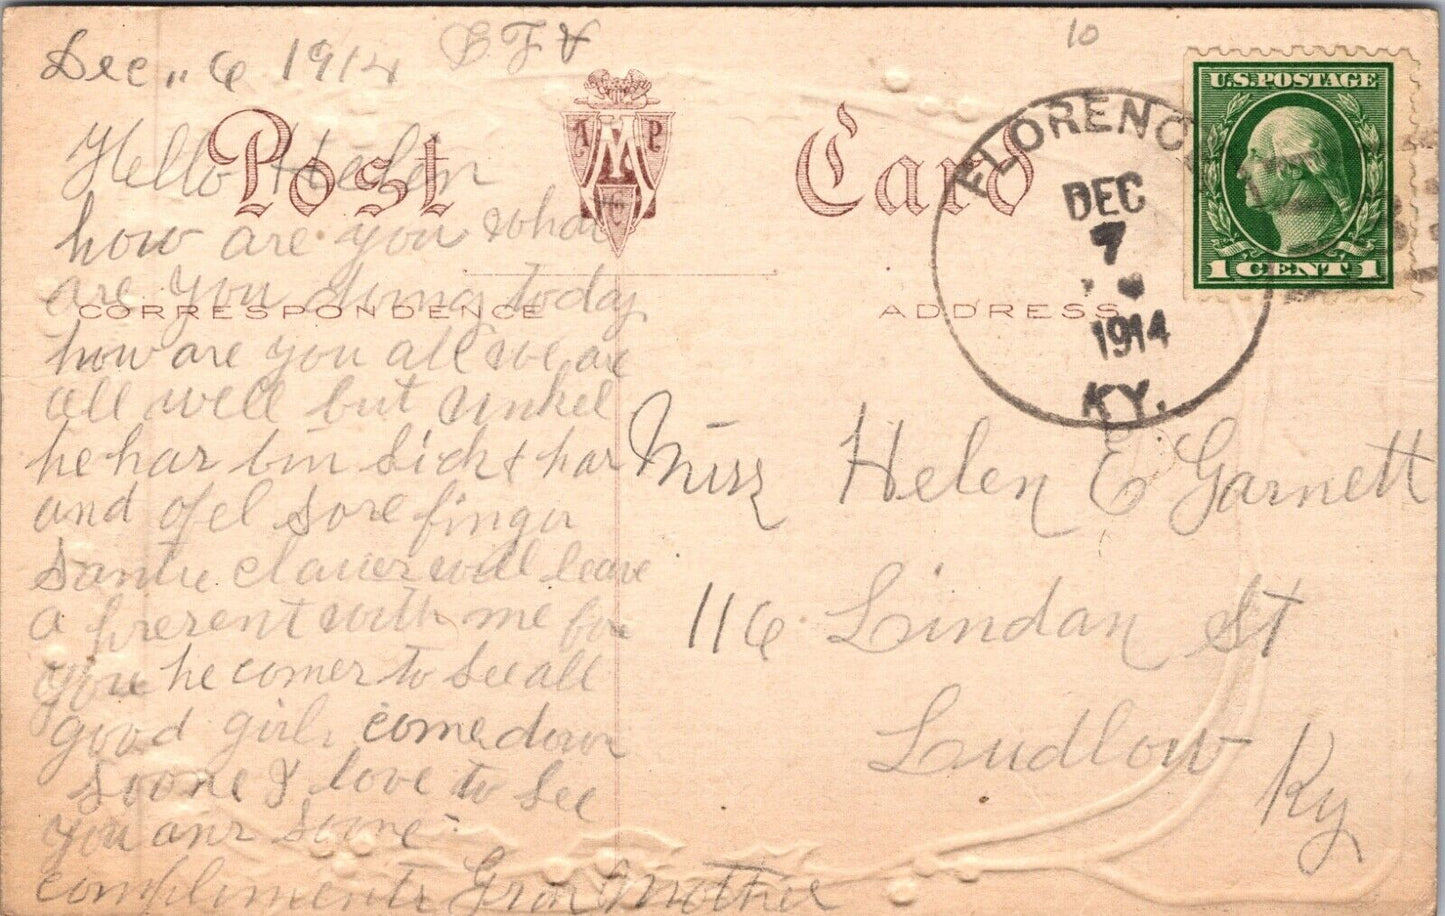 Dec,, 6 1914
10
Post Card
A M P C
U.S. POSTAGE
1 CENT 1
FLORENCE
DEC
7
1914
KY.
CORRESPONDENCE
ADDRESS
Hello Helen
how are you what
are you doing today
how are you all we are
all well but unkel
he has bin Sick & has
and ofel sore finger
Santie clauser will leave
a present with me for
you he comes to see all
good girls come down
soone I love to see
you anr soone
compliments Gran Mother
Miss Helen E Garnett
116 Lindan St
Ludlow
Ky